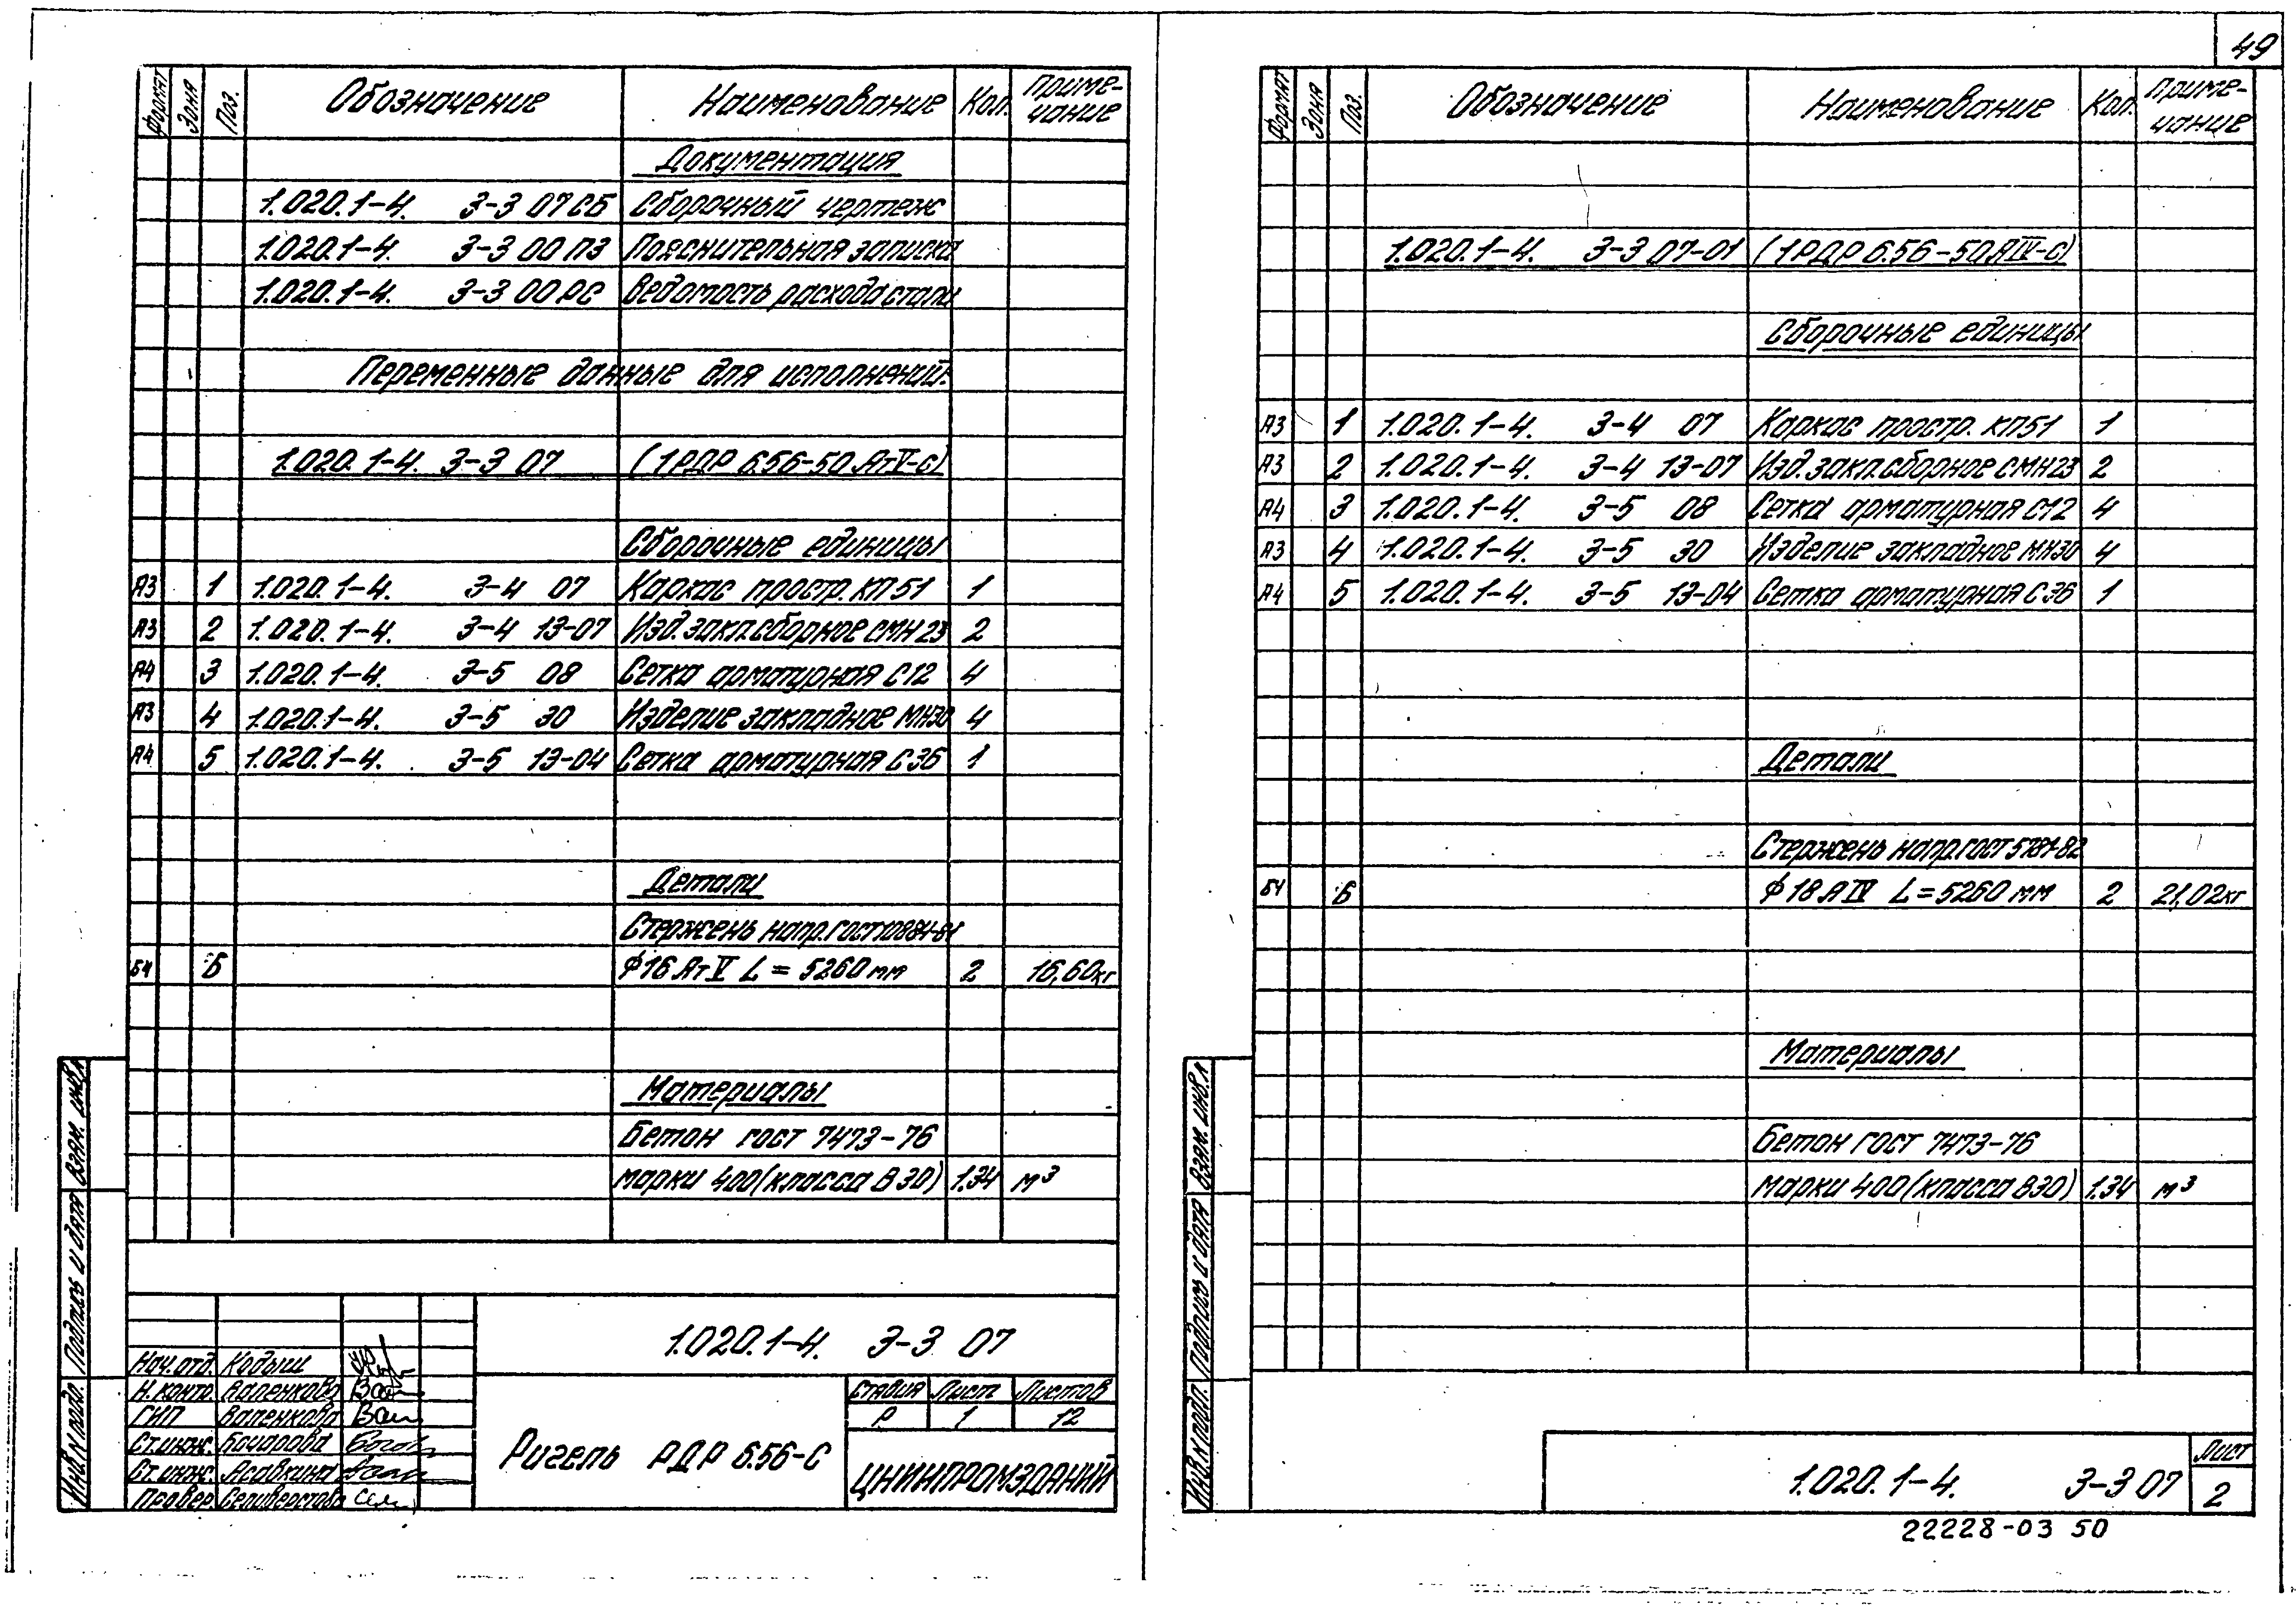 49
Формат Зона Поз. Обозначение Наименование Кол. Приме-чание
Документация
1.020.1-4. 3-3 07 СБ Сборочный чертеж
1.020.1-4. 3-3 00 ПЗ Пояснительная записка
1.020.1-4. 3-3 00 РС Ведомость расхода стали
Переменные данные для исполнений:
1.020.1-4. 3-3 07 (1РДР 6.56-50 АтV-С)
Сборочные единицы
А3 1 1.020.1-4. 3-4 07 Каркас простр. КП51 1
А3 2 1.020.1-4. 3-4 13-07 Изд. закл. сборное СМН23 2
А4 3 1.020.1-4. 3-5 08 Сетка арматурная С12 4
А3 4 1.020.1-4. 3-5 30 Изделие закладное МН30 4
А4 5 1.020.1-4. 3-5 13-04 Сетка арматурная С36 1
Детали
Стержень напр. ГОСТ 10884-81
БЧ 6 ф16 АтV L=5260 мм 2 16,60кг
Материалы
Бетон ГОСТ 7473-76
марки 400 (класса В30) 1.34 м³
Взам. инв.№
Подпись и дата
Инв.№ подл.
1.020.1-4. 3-3 07
Нач.отд. Кодыш
Н.контр. Валенкова
ГИП Валенкова
Ст.инж. Бочарова
Ст.инж. Асавкина
Провер. Селиверстова
Ригель РДР 6.56-С
Стадия Лист Листов
Р 1 12
ЦНИИПРОМЗДАНИЙ
Формат Зона Поз. Обозначение Наименование Кол. Приме-чание
1.020.1-4. 3-3 07-01 (1РДР 6.56-50АIV-С)
Сборочные единицы
А3 1 1.020.1-4. 3-4 07 Каркас простр. КП51 1
А3 2 1.020.1-4. 3-4 13-07 Изд. закл. сборное СМН23 2
А4 3 1.020.1-4. 3-5 08 Сетка арматурная С12 4
А3 4 1.020.1-4. 3-5 30 Изделие закладное МН30 4
А4 5 1.020.1-4. 3-5 13-04 Сетка арматурная С36 1
Детали
Стержень напр. ГОСТ 5781-82
БЧ 6 ф18 АIV L=5260 мм 2 21,02кг
Материалы
Бетон ГОСТ 7473-76
марки 400 (класса В30) 1.34 м³
Взам. инв.№
Подпись и дата
Инв.№ подл.
1.020.1-4. 3-3 07
Лист
2
22228-03 50